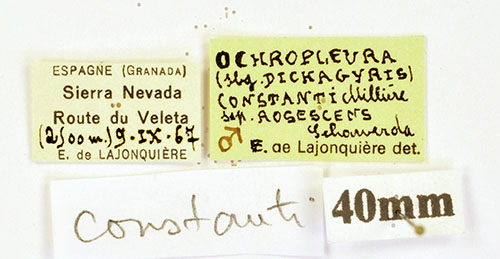 ESPAGNE (GRANADA)
Sierra Nevada
Route du Veleta
(2500m) 9-IX-67
E. de LAJONQUIÈRE
OCHROPLEURA
(sbg. DICKAGYRIS)
CONSTANTI Millière
ssp. ROSESCENS
♂ Schawerda
E. de Lajonquière det.
constanti
40mm